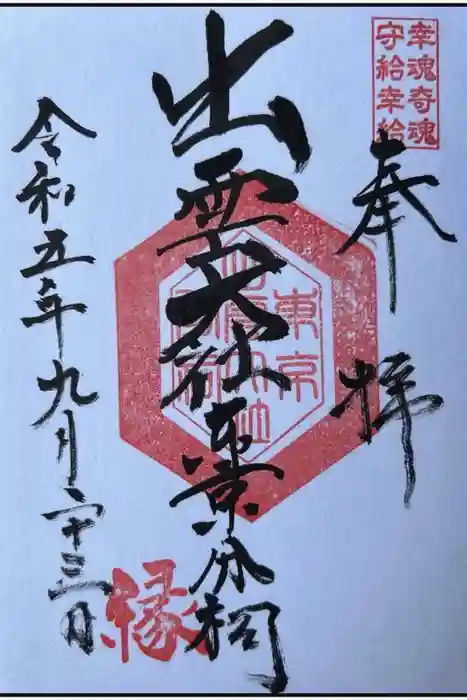 幸魂奇魂
守給幸給
奉拝
出雲大社東京分祠
東京
令和五年九月二十三日
縁